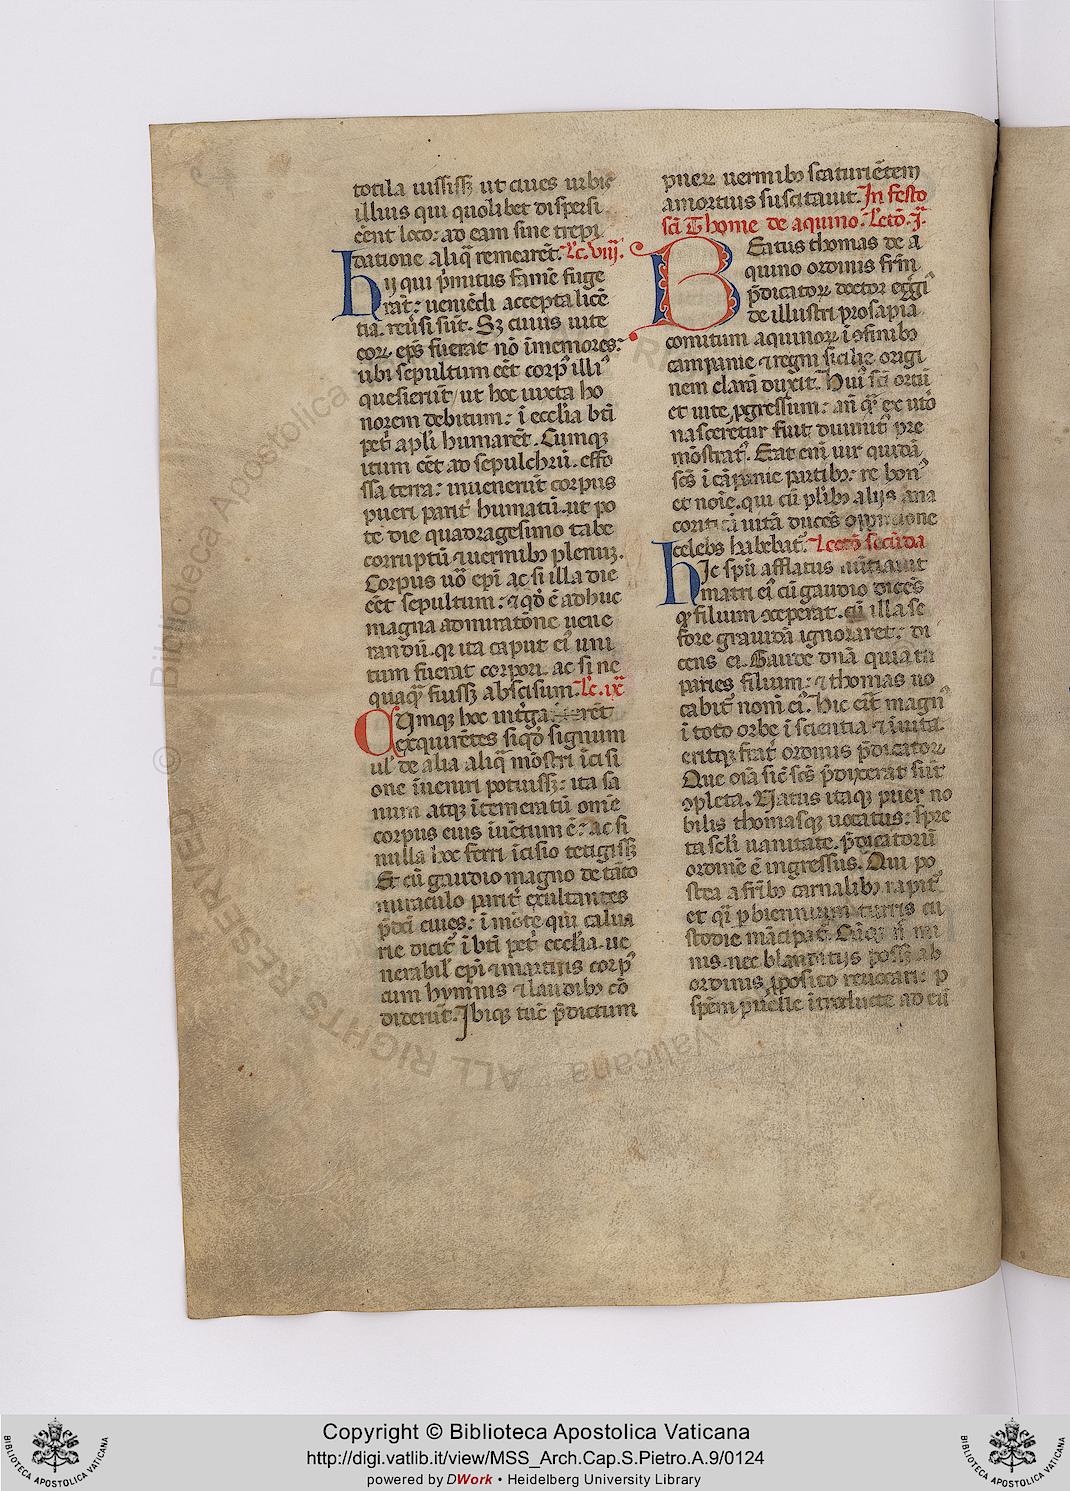 totila iussiss3 ut ciues urbis
illius qui quolibet dispersi
eēnt loco: ad eam sine trepi
datione aliqͣ remearēt. Lc̄. viij.
hij qui p̄mitus famē fuge
rāt: ueniēdi accepta licē
tia. reūsi sūt. S3 cuius uite
eoꝝ. ep̄s fuerat nō īmemores:
ubi sepultum eēt corpꝰ illiꝰ
quesierūt/ ut hoc iuxta ho
norem debitum: ī ecclīa btī
petͥ apłi humarēt. Cumqꝫ
itum eēt ad sepulchrū. effo
ssa terra: inuenerūt corpus
pueri parit̄ humatū. ut po
te die quadragesimo tabe
corruptū ⁊ uermibꝫ plenuꝫ.
Corpus uō ep̄i ac si illa die
eēt sepultum: ⁊ qđ ē adhuc
magna admiratōne uene
randū. qꝛ ita caput eiꝰ uni
tum fuerat corpori. ac si ne
quaqͣꝫ fuissꝫ abscisum. Lc̄. ix.ͣ
Cūmqꝫ hoc int̄ga rēt
exquirētes siqđ signum
ul̄ de alia aliqͣ mōstri īcisi
one īueniri potuissꝫ: ita sa
num. atqꝫ ītemeratū om̄e
corpus eius īuētum ē: ac si
nulla hoc ferri īcisio tetigissꝫ
Et cū gaudio magno de tāto
miraculo parit̄ exultantes
p̄dc̄i ciues: ī mōte qui calua
rie dicit̄ ī btī petͥ ecclīa. ue
nerabil̄ ep̄i ⁊ martiris corpꝰ
cum hymnis ⁊ laudibꝫ cō
diderūt. Ibiqꝫ tūc p̄dictum
pueꝝ uermibꝫ scaturiētem
amortuis suscitauit. In festo
scī Thome de aquino. Lectō. j.ͣ
Beatus thomas de a
quino ordinis fr̄m
p̄dicatoꝝ doctor egḡiꝰ
de illustri prosapia
comitum aquinoꝝ ī ꝯfinibꝫ
campanie ⁊ regni sicilie origi
nem clarā duxit. Huiꝰ scī ortū
et uite ꝓgressum: an̄ qͣꝫ ex uto
nasceretur fiuit diuinitꝰ pre
mōstratꝰ. Erat eni uir quidā
scs̄ ī cāpanie partibꝫ: re bonꝰ
et noīe. qui cū pl̄ibꝫ alijs ana
coriticā uitā ducēs opinione
celebs habebat̄. Lectō secūda
hIc spū afflatus nūtiauit
matri eiꝰ cū gaudio dicēs
qꝫ filium ꝯceperat. cū illa se
fore grauidā ignoraret: di
cens ei. Gaude dn̄a quia tu
paries filium: ⁊ thomas uo
cabit̄ nom̄ eiꝰ. hic eit̄ magnꝰ
ī toto orbe ī scientia ⁊ ī uita.
eritqꝫ frat̄ ordinis p̄dicatoꝝ
Que oīa sic̄ scs̄ p̄dixerat sūt
ꝯpleta. Natus itaqꝫ puer no
bilis thomasqꝫ uocatus: spre
ta sclī uanitate. p̄dicatorū
ordinē ē ingressus. Qui po
stea a fr̄ibꝫ carnalibꝫ rapit̄
et qͣi ꝑ biennium turris cu
stodie mācipat̄. Cūqꝫ n̄ mi
nis. nec blanditijs possꝫ ab
ordinis ꝓposito reuocari: ꝑ
spēm puelle ītroducte ad eū
Copyright © Biblioteca Apostolica Vaticana
http://digi.vatlib.it/view/MSS_Arch.Cap.S.Pietro.A.9/0124
powered by DWork • Heidelberg University Library